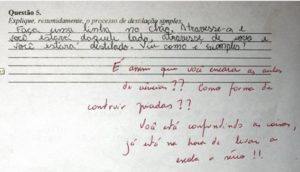 Questão 5.
Explique, resumidamente, o processo de destilação simples.
Faça uma linha no chão, atravesse-a e
você estará daquele lado, atravesse de novo e
você estará destilado. Viu como é simples?
É assim que você encara as aulas
de ciências?? Como forma de
construir piadas??
Você está confundindo as coisas,
já está na hora de levar a
escola a sério!!